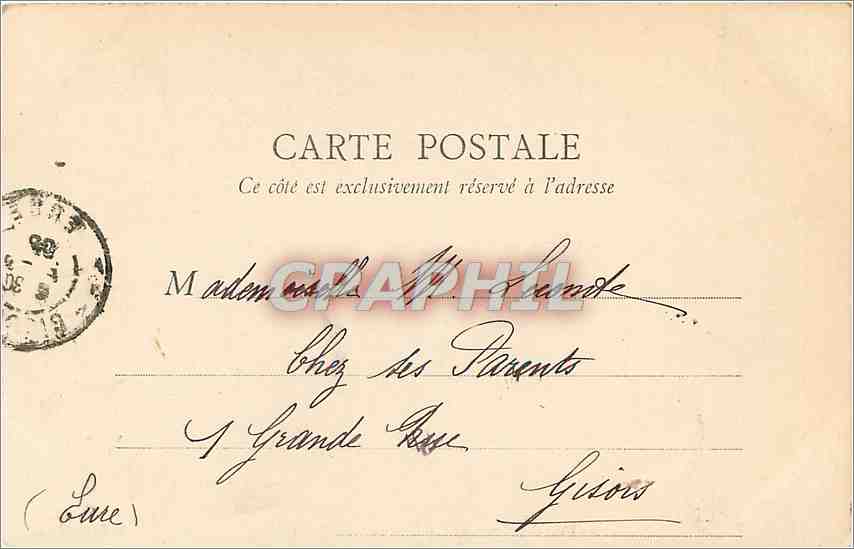 CARTE POSTALE
Ce côté est exclusivement réservé à l'adresse
Mademoiselle M. Lecomte
GRAPHIL
Chez ses Parents
1 Grande Rue
Gisors
(Eure)
EURE